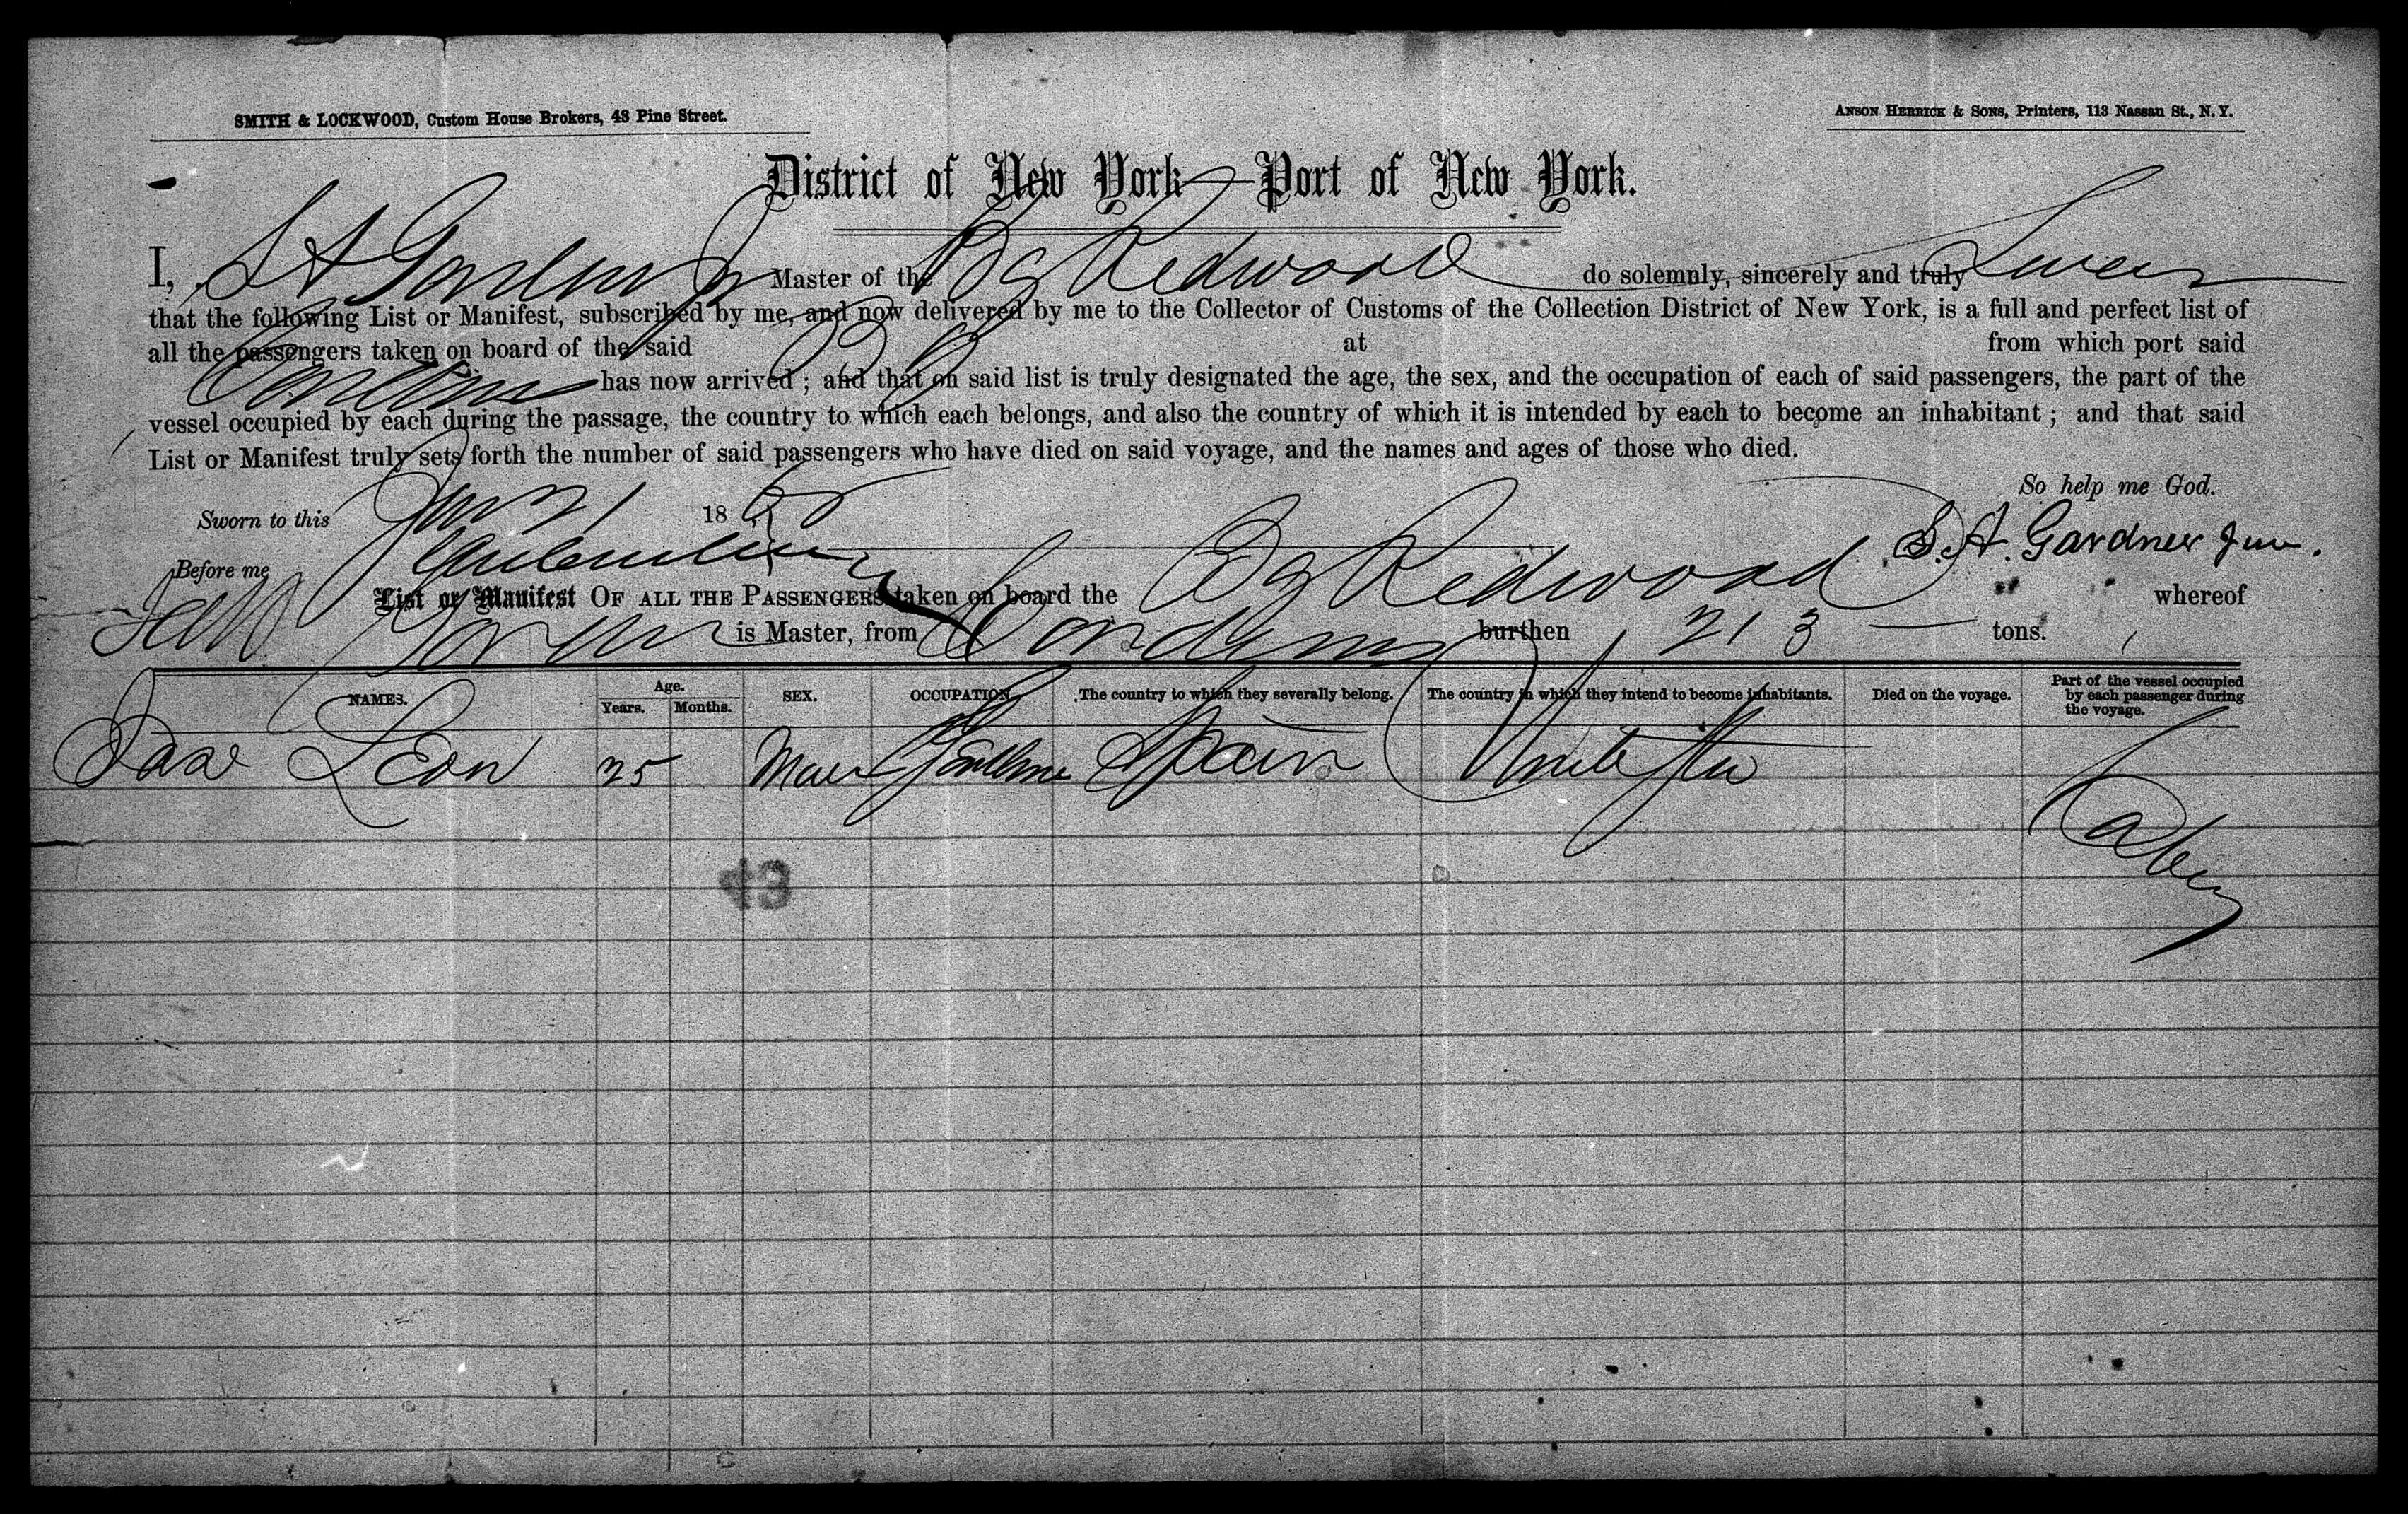 SMITH & LOCKWOOD, Custom House Brokers, 43 Pine Street.
ANSON HERRICK & SONS, Printers, 113 Nassau St., N. Y.
District of New York—Port of New York.
I, S A Gardner Jr Master of the Bg Redwood do solemnly, sincerely and truly Swear
that the following List or Manifest, subscribed by me, and now delivered by me to the Collector of Customs of the Collection District of New York, is a full and perfect list of
all the passengers taken on board of the said Bg at from which port said
has now arrived ; and that on said list is truly designated the age, the sex, and the occupation of each of said passengers, the part of the
vessel occupied by each during the passage, the country to which each belongs, and also the country of which it is intended by each to become an inhabitant ; and that said
List or Manifest truly sets forth the number of said passengers who have died on said voyage, and the names and ages of those who died.
So help me God.
Sworn to this 1865
S. A. Gardner Jun.
Before me
List or Manifest OF ALL THE PASSENGERS taken on board the Bg Redwood whereof
is Master, from burthen 213 tons.
NAMES. Age. Years. Months. SEX. OCCUPATION. The country to which they severally belong. The country in which they intend to become inhabitants. Died on the voyage. Part of the vessel occupied by each passenger during the voyage.
Leon 25 Male Spain
43